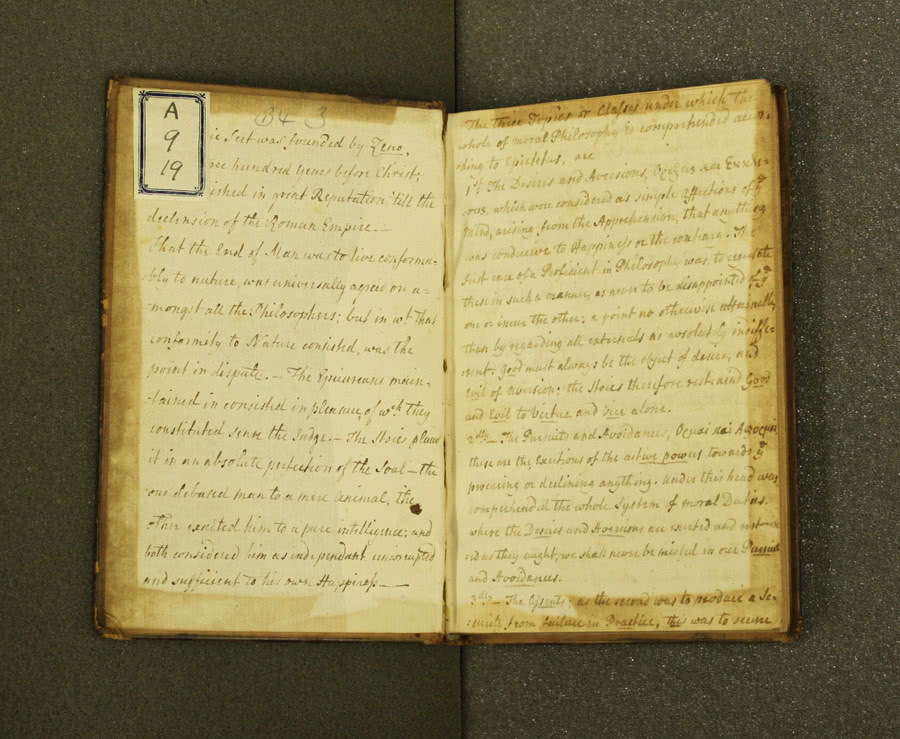 A
9
19
B4 3
ic Sect was founded by Zeno,
ree hundred years before Christ;
ished in great Reputation 'till the
declension of the Roman Empire. —
That the End of Man was to live conforma-
bly to nature, was universally agreed on a-
-mongst all the Philosophers; but in wt. that
conformity to Nature consisted, was the
point in dispute. — The Epicureans main-
-tained it consisted in pleasure, of wch. they
constituted sense the Judge — The Stoics placed
it in an absolute perfection of the Soul — the
one debased man to a mere Animal, the
other exalted him to a pure intelligence; and
both considered him as independant uncorrupted
and sufficient to his own Happiness —
The three Topics or Classes under which the
whole of moral Philosophy is comprehended accor-
ding to Epictetus, are
1st. The Desires and Aversions,
which were considered as simple Affections of ye
mind, arising from the Apprehension, that anything
was conducive to Happiness or the contrary. The
first care of a Proficient in Philosophy was, to regulate
these in such a manner, as never to be disappointed of ye
one or incur the other: a point no otherwise attainable,
than by regarding all externals as absolutely indiffe-
rent: Good must always be the object of desire, and
Evil of Aversion; the Stoics therefore restrained Good
and Evil to Virtue and Vice alone.
2dly — The Pursuits and Avoidances,
these are the Exertions of the active powers towards ye
procuring or declining anything. Under this head was
comprehended the whole System of moral Duties.
where the Desires and Aversions are exerted and
as they ought, we shall never be misled in our Pursuits
and Avoidances.
3dly — The Assents; as the second was to produce a Se-
curity from Failure in Practice, this was to secure